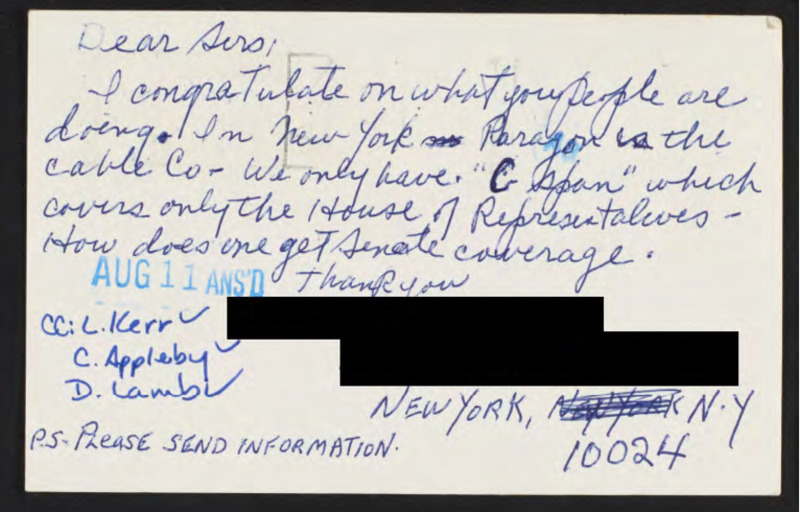 Dear Sirs;
I congratulate on what you people are
doing. In New York Paragon is the
cable Co- We only have "C-Span" which
covers only the House of Representatives -
How does one get Senate coverage.
Thank you
AUG 11 ANS'D
CC: L. Kerr ✓
C. Appleby ✓
D. Lamb ✓
NEW YORK, N.Y
10024
P.S- PLEASE SEND INFORMATION.